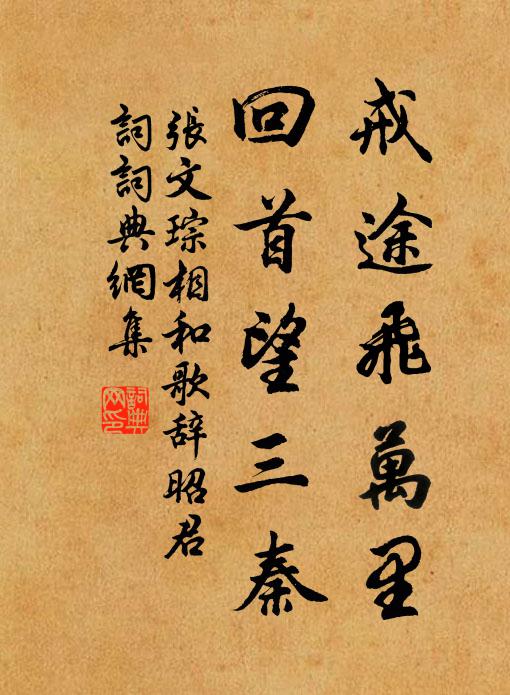 戒途飛萬里
回首望三秦
張文琮相和歌辞昭君
詞詞典網集
詞典
网印